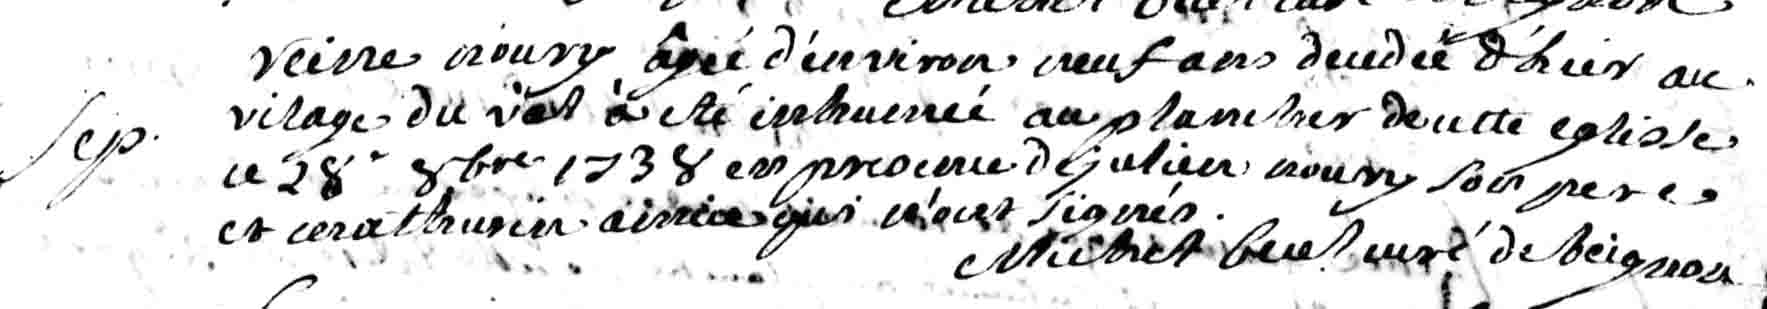 noury âgéé d'environ neuf ans decedéé d'hier au
Sep. vilage du val à eté inhumeé au plancher de cette eglisse
ce 28e 8bre 1738 en presence de julien noury son pere
et mathurin qui n'ont signés.
Michel curé de beignon